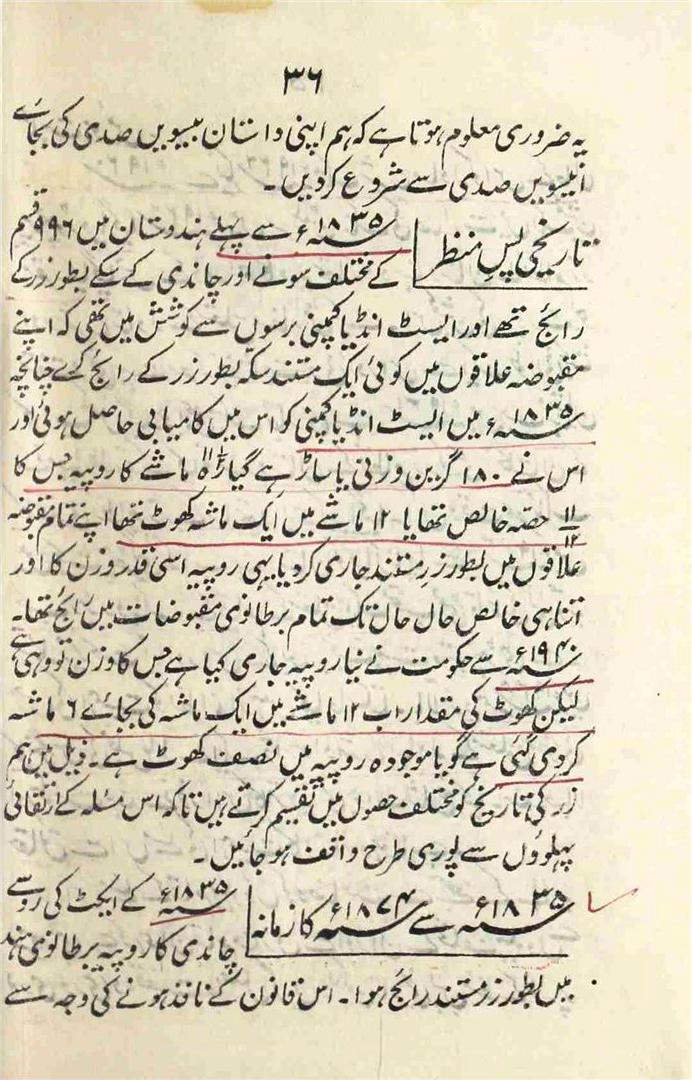 ۳۶
یہ ضروری معلوم ہوتا ہے کہ ہم اپنی داستان بیسویں صدی کی بجائے
انیسویں صدی سے شروع کردیں۔
تاریخی پس منظر
۱۸۳۵ء سے پہلے ہندوستان میں ۹۹۶ قسم
کے مختلف سونے اور چاندی کے سکے بطور زر کے
رائج تھے اور ایسٹ انڈیا کمپنی برسوں سے کوشش میں تھی کہ اپنے
مقبوضہ علاقوں میں کوئی ایک مستند سکہ بطور زر کے رائج کرے چنانچہ
۱۸۳۵ء میں ایسٹ انڈیا کمپنی کو اس میں کامیابی حاصل ہوئی اور
اس نے ۱۸۰ گرین وزنی یا ساڑھے گیارہ ماشے کا روپیہ جس کا
۱۱/۱۲ حصہ خالص تھا یا ۱۲ ماشے میں ایک ماشہ کھوٹ تھا اپنے تمام مقبوضہ
علاقوں میں بطور زرِ مستند جاری کر دیا یہی روپیہ اسی قدر وزن کا اور
اتنا ہی خالص حال حال تک تمام برطانوی مقبوضات میں رائج تھا۔
۱۹۴۰ء سے حکومت نے نیا روپیہ جاری کیا ہے جس کا وزن تو وہی ہے
لیکن کھوٹ کی مقدار اب ۱۲ ماشے میں ایک ماشہ کی بجائے ۶ ماشہ
کر دی گئی ہے گویا موجودہ روپیہ میں نصف کھوٹ ہے۔ ذیل میں ہم
زر کی تاریخ کو مختلف حصوں میں تقسیم کرتے ہیں تاکہ اس مسئلہ کے ارتقائی
پہلوؤں سے پوری طرح واقف ہو جائیں۔
۱۸۳۵ء سے ۱۸۷۴ء کا زمانہ
۱۸۳۵ء کے ایکٹ کی رو سے
چاندی کا روپیہ برطانوی ہند
میں بطور زر مستند رائج ہوا۔ اس قانون کے نافذ ہونے کی وجہ سے